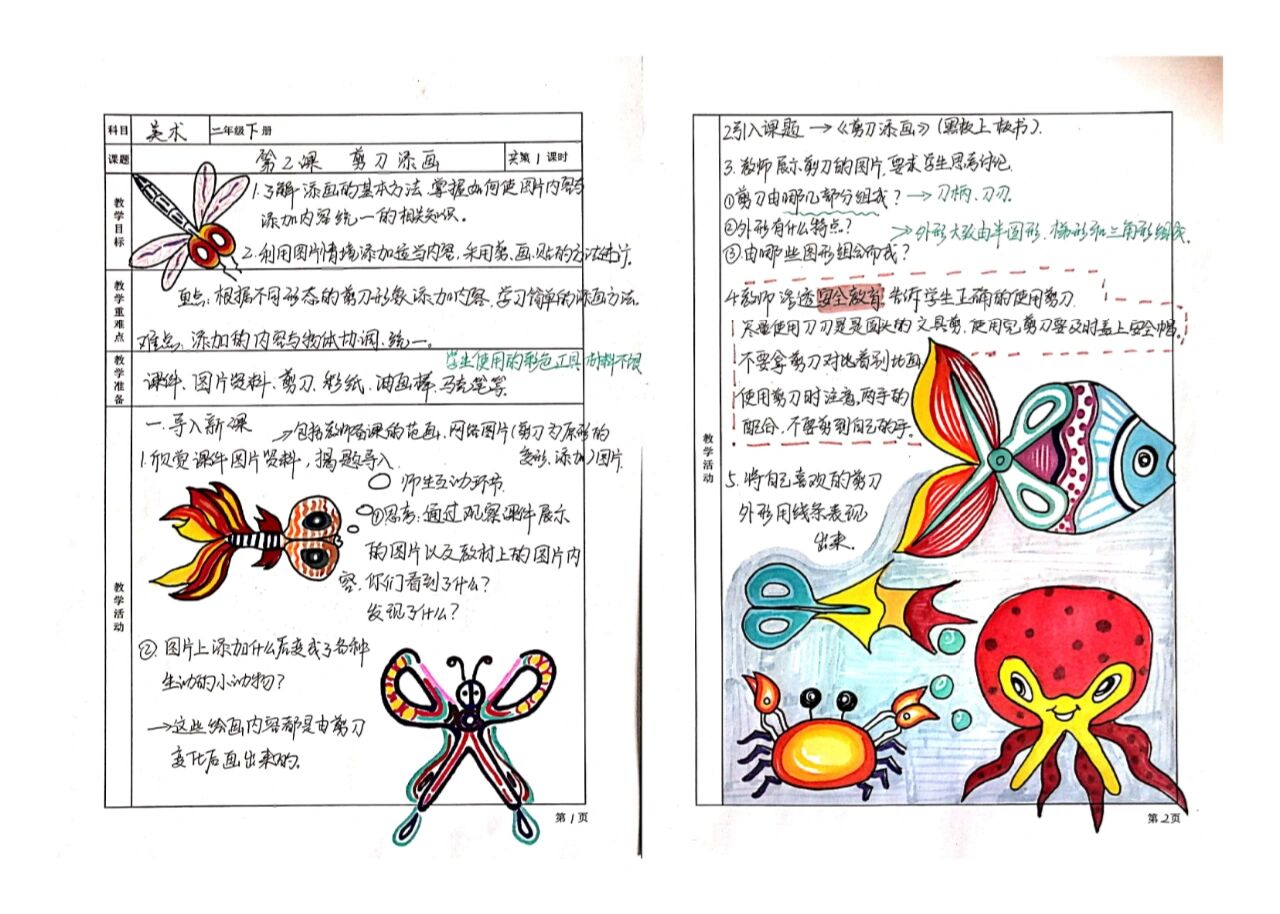 科目 美术 二年级下册
课题 第2课 剪刀添画 共第1课时
教学目标
1.了解添画的基本方法,掌握如何使图片内容与
添加内容统一的相关知识。
2.利用图片情境添加适当内容,采用剪、画、贴的方法进行。
教学重难点
重点:根据不同形态的剪刀形象添加内容,学习简单的添画方法。
难点:添加的内容与物体协调、统一。
教学准备
学生使用的彩色工具材料不限
课件、图片资料、剪刀、彩纸、油画棒、马克笔等。
教学活动
一.导入新课
→包括教师备课的范画、网络图片(剪刀为原形的
变形、添加)图片
1.欣赏课件图片资料,揭题导入
师生互动环节
①思考:通过观察课件展示
的图片以及教材上的图片内
容,你们看到了什么?
发现了什么?
② 图片上添加什么后变成了各种
生动的小动物?
→这些绘画内容都是由剪刀
变化后画出来的。
第1页
教学活动
2引入课题→《剪刀添画》(黑板上板书).
3.教师展示剪刀的图片,要求学生思考讨论
①剪刀由哪几部分组成?→刀柄、刀刃.
②外形有什么特点?
→外形大致由半圆形、梯形和三角形组成.
③由哪些图形组合而成?
4教师渗透安全教育 告诉学生正确的使用剪刀.
尽量使用刀刃是圆头的文具剪,使用完剪刀要及时盖上安全帽.
不要拿剪刀对比着别比画
使用剪刀时注意两手的
配合,不要剪到自己的手.
5.将自己喜欢的剪刀
外形用线条表现
出来.
第2页